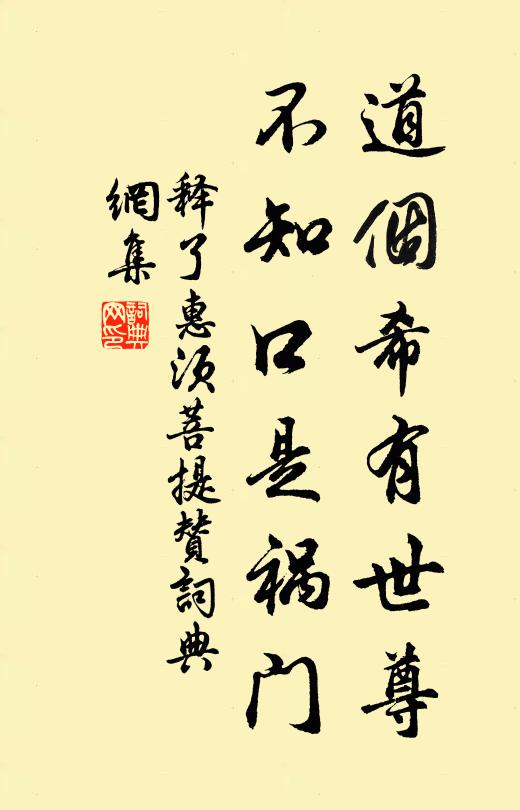 道個希有世尊
不知口是禍门
释了惠须菩提赞詞典
網集
詞典
网印